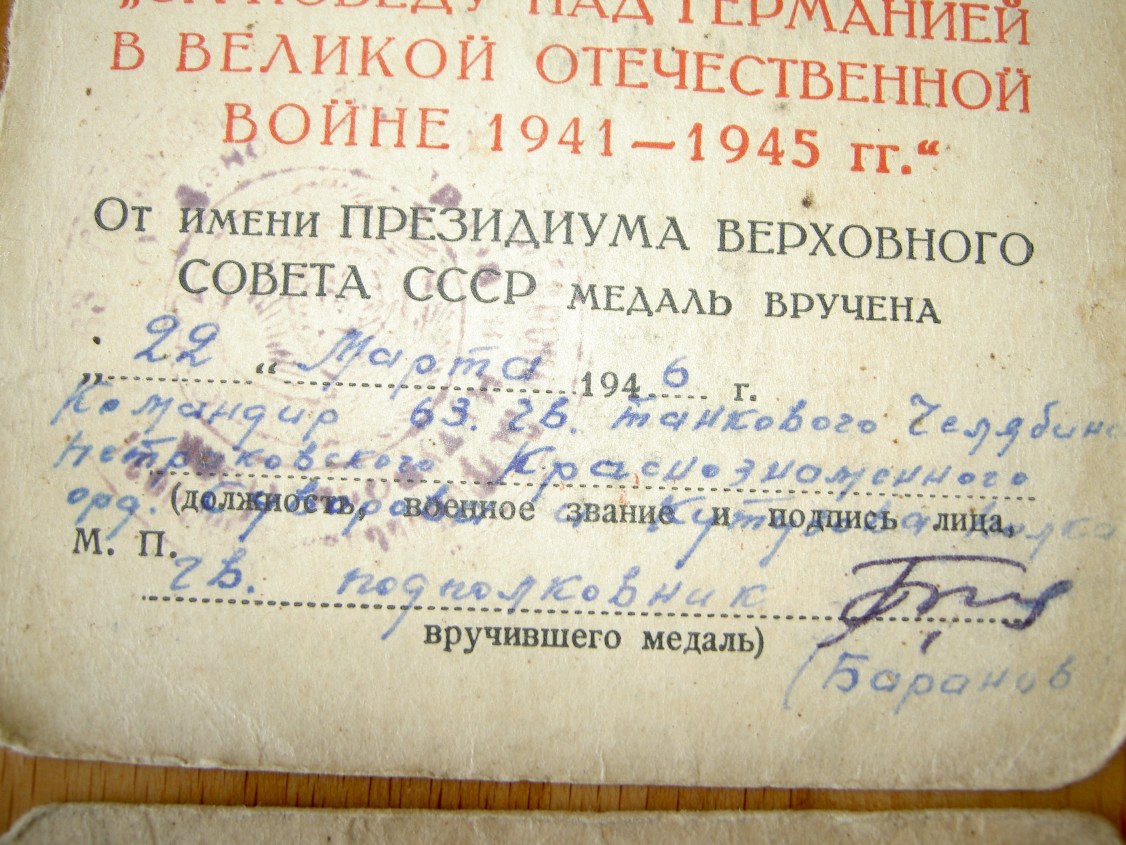 „ЗА ПОБЕДУ НАД ГЕРМАНИЕЙ
В ВЕЛИКОЙ ОТЕЧЕСТВЕННОЙ
ВОЙНЕ 1941—1945 гг.“
От имени ПРЕЗИДИУМА ВЕРХОВНОГО
СОВЕТА СССР МЕДАЛЬ ВРУЧЕНА
„22“ Марта 1946 г.
Командир 63. гв. танкового Челябинс
Петраковского Краснознаменного
орд. Суворова и Кутузова полка
(должность, военное звание и подпись лица,
М. П.
гв. подполковник
вручившего медаль)
(Баранов